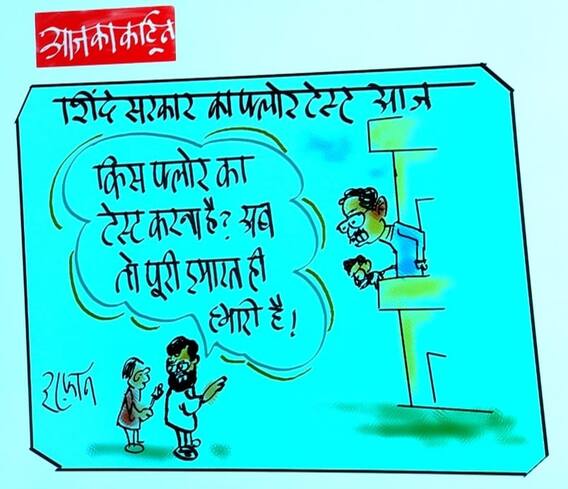 आज का कार्टून
शिंदे सरकार का फ्लोर टेस्ट आज
किस फ्लोर का
टेस्ट करना है? अब
तो पूरी इमारत ही
हमारी है!
इरफ़ान